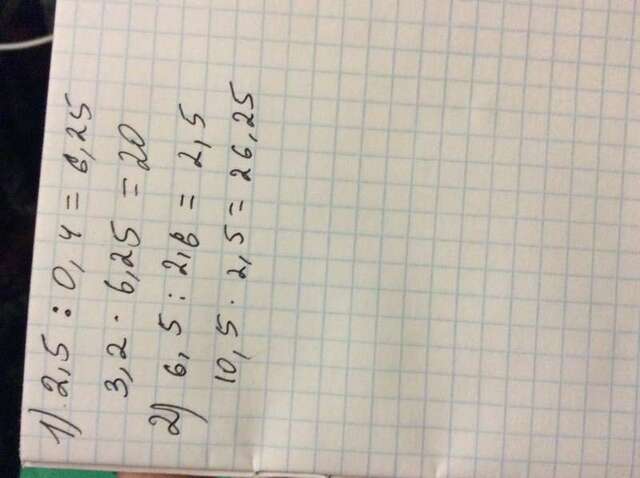 1) 2,5 : 0,4 = 6,25
3,2 · 6,25 = 20
2) 6,5 : 2,6 = 2,5
10,5 · 2,5 = 26,25